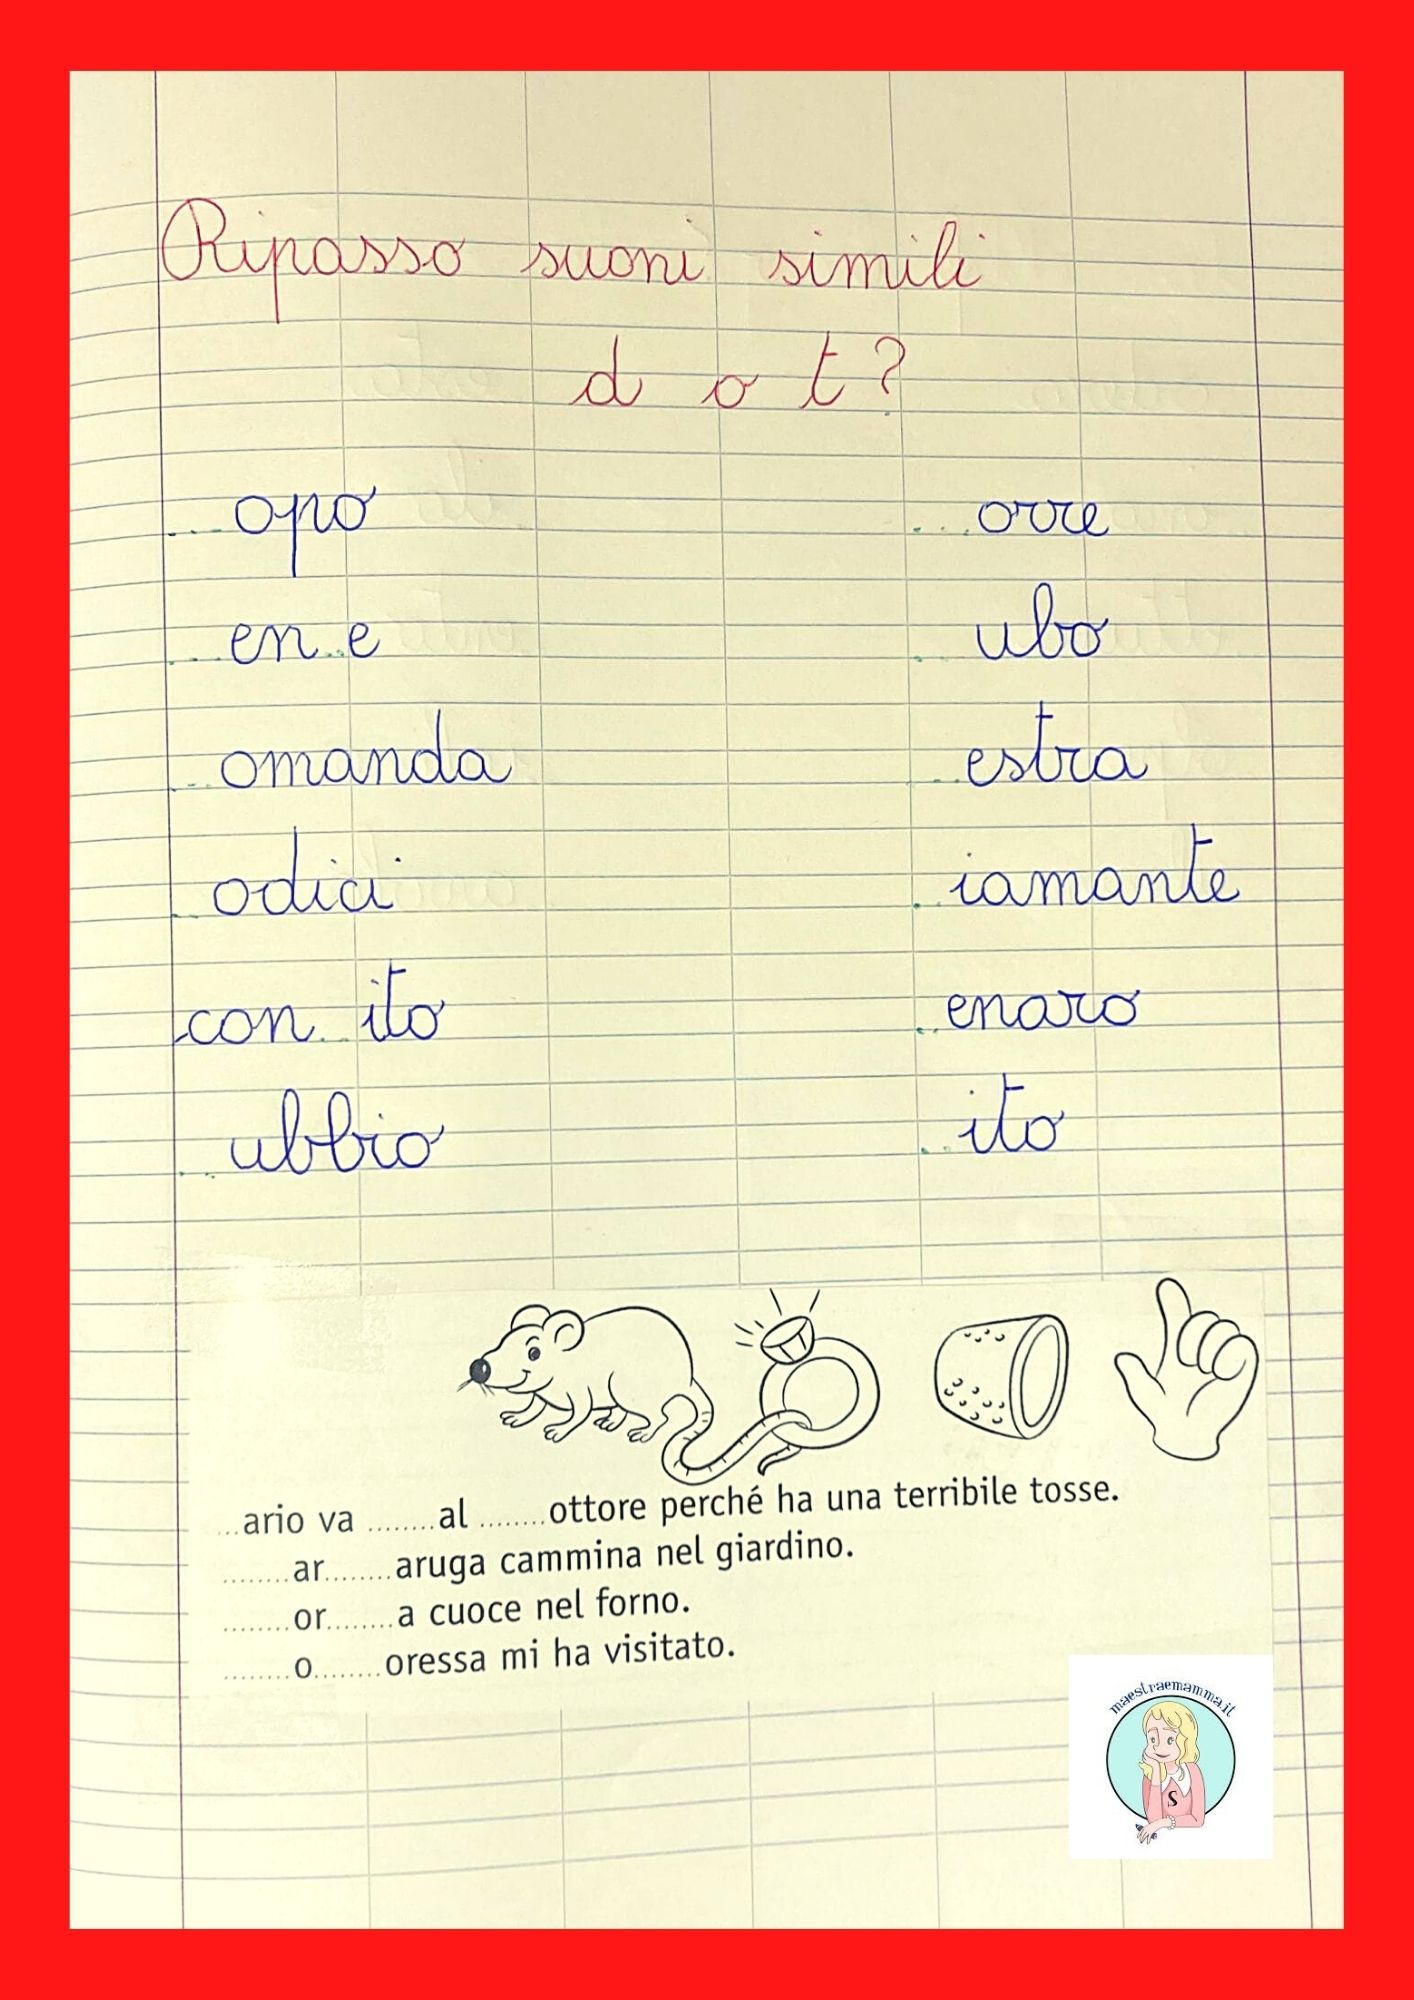 Ripasso suoni simili
d o t?
...opo ...orre
...en...e ...ubo
...omanda ...estra
...odici ...iamante
con...ito ...enaro
...ubbio ...ito
...ario va ........al ........ottore perché ha una terribile tosse.
........ar........aruga cammina nel giardino.
........or........a cuoce nel forno.
........o........oressa mi ha visitato.
maestraemamma.it
S